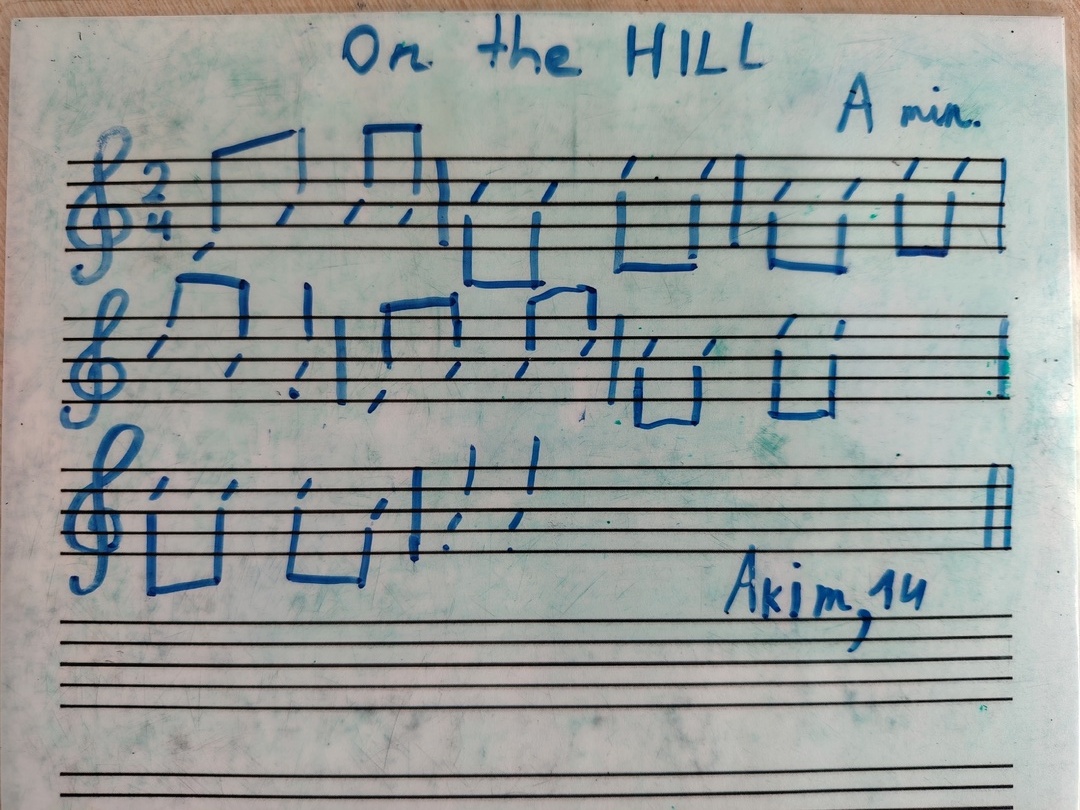 On the HILL
A min.
2
4
Akim, 14